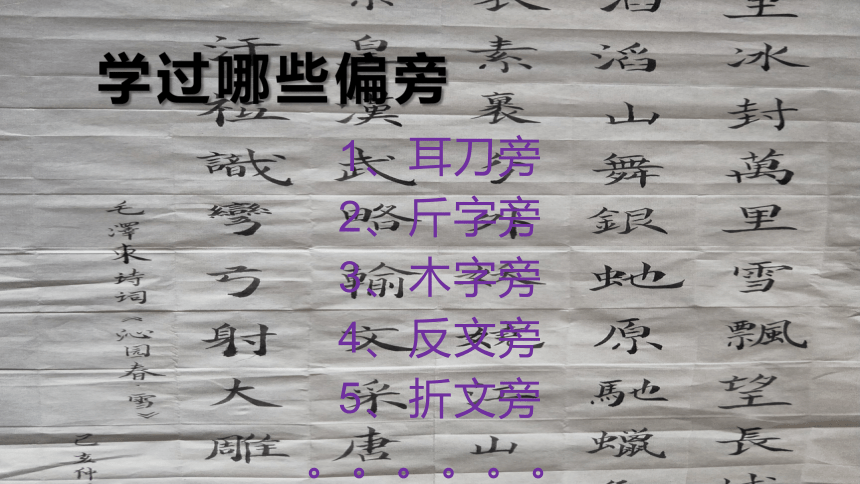 学过哪些偏旁
1、耳刀旁
2、斤字旁
3、木字旁
4、反文旁
5、折文旁
。。。。。。
冰封萬里雪飄望長
滔山舞銀虵原馳蠟
素裹
皇漢武略輸文采唐
識彎弓射大雕
毛澤東诗词《沁园春·雪》